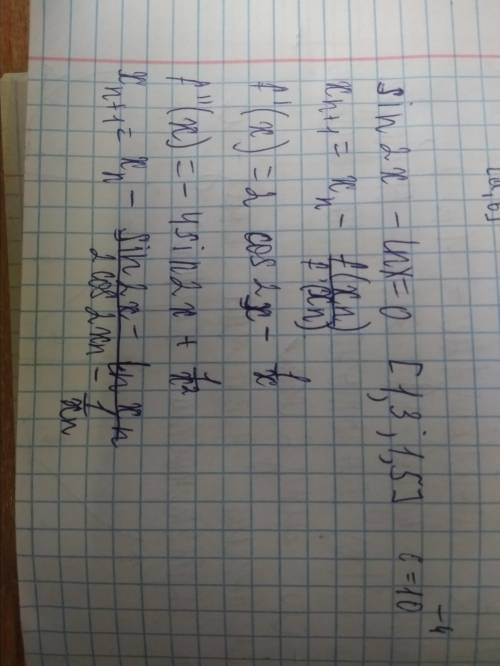 sin 2x - ln x = 0 [1,3 ; 1,5] ε = 10⁻⁴
xₙ₊₁ = xₙ - f(xₙ)/f'(xₙ)
f'(x) = 2 cos 2x - 1/x
f''(x) = - 4 sin 2x + 1/x²
xₙ₊₁ = xₙ - (sin 2x - ln xₙ)/(2 cos 2xₙ - 1/xₙ)